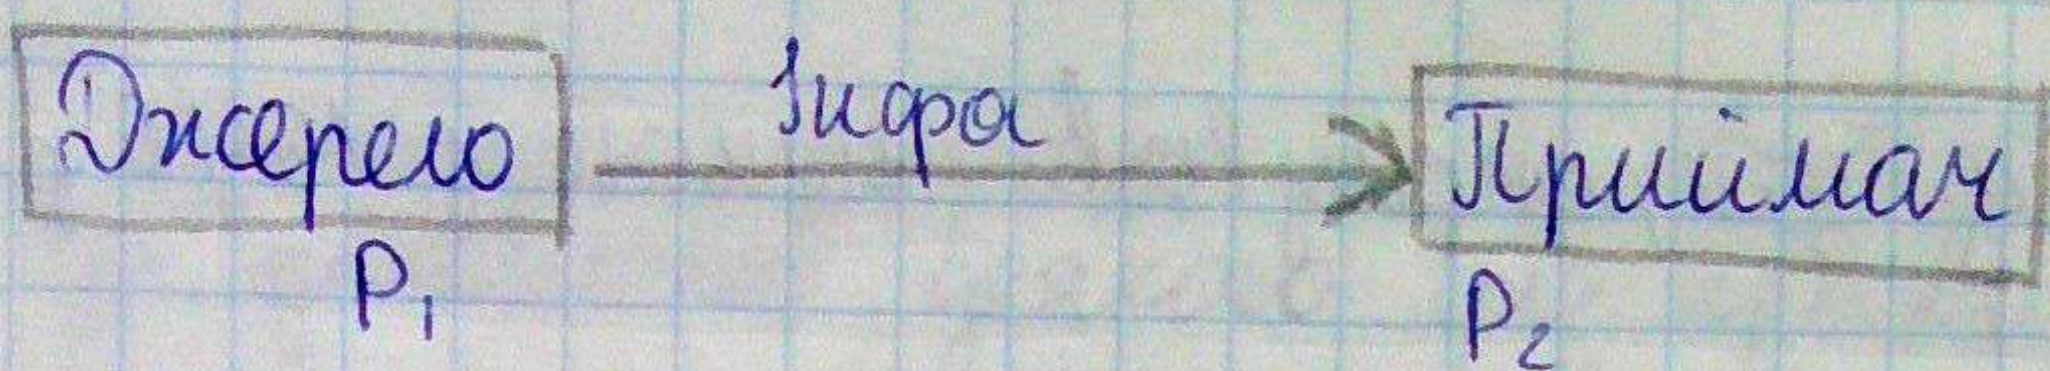 Джерело Інфа Приймач
P₁ P₂